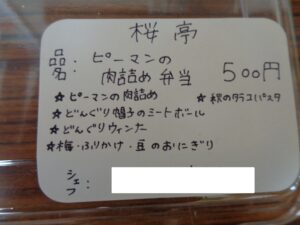 桜亭
品名:ピーマンの
肉詰め弁当 500円
☆ピーマンの肉詰め ☆秋のタラコパスタ
☆どんぐり帽子のミートボール
☆どんぐりウィンナー
☆梅・ふりかけ・豆のおにぎり
シェフ: